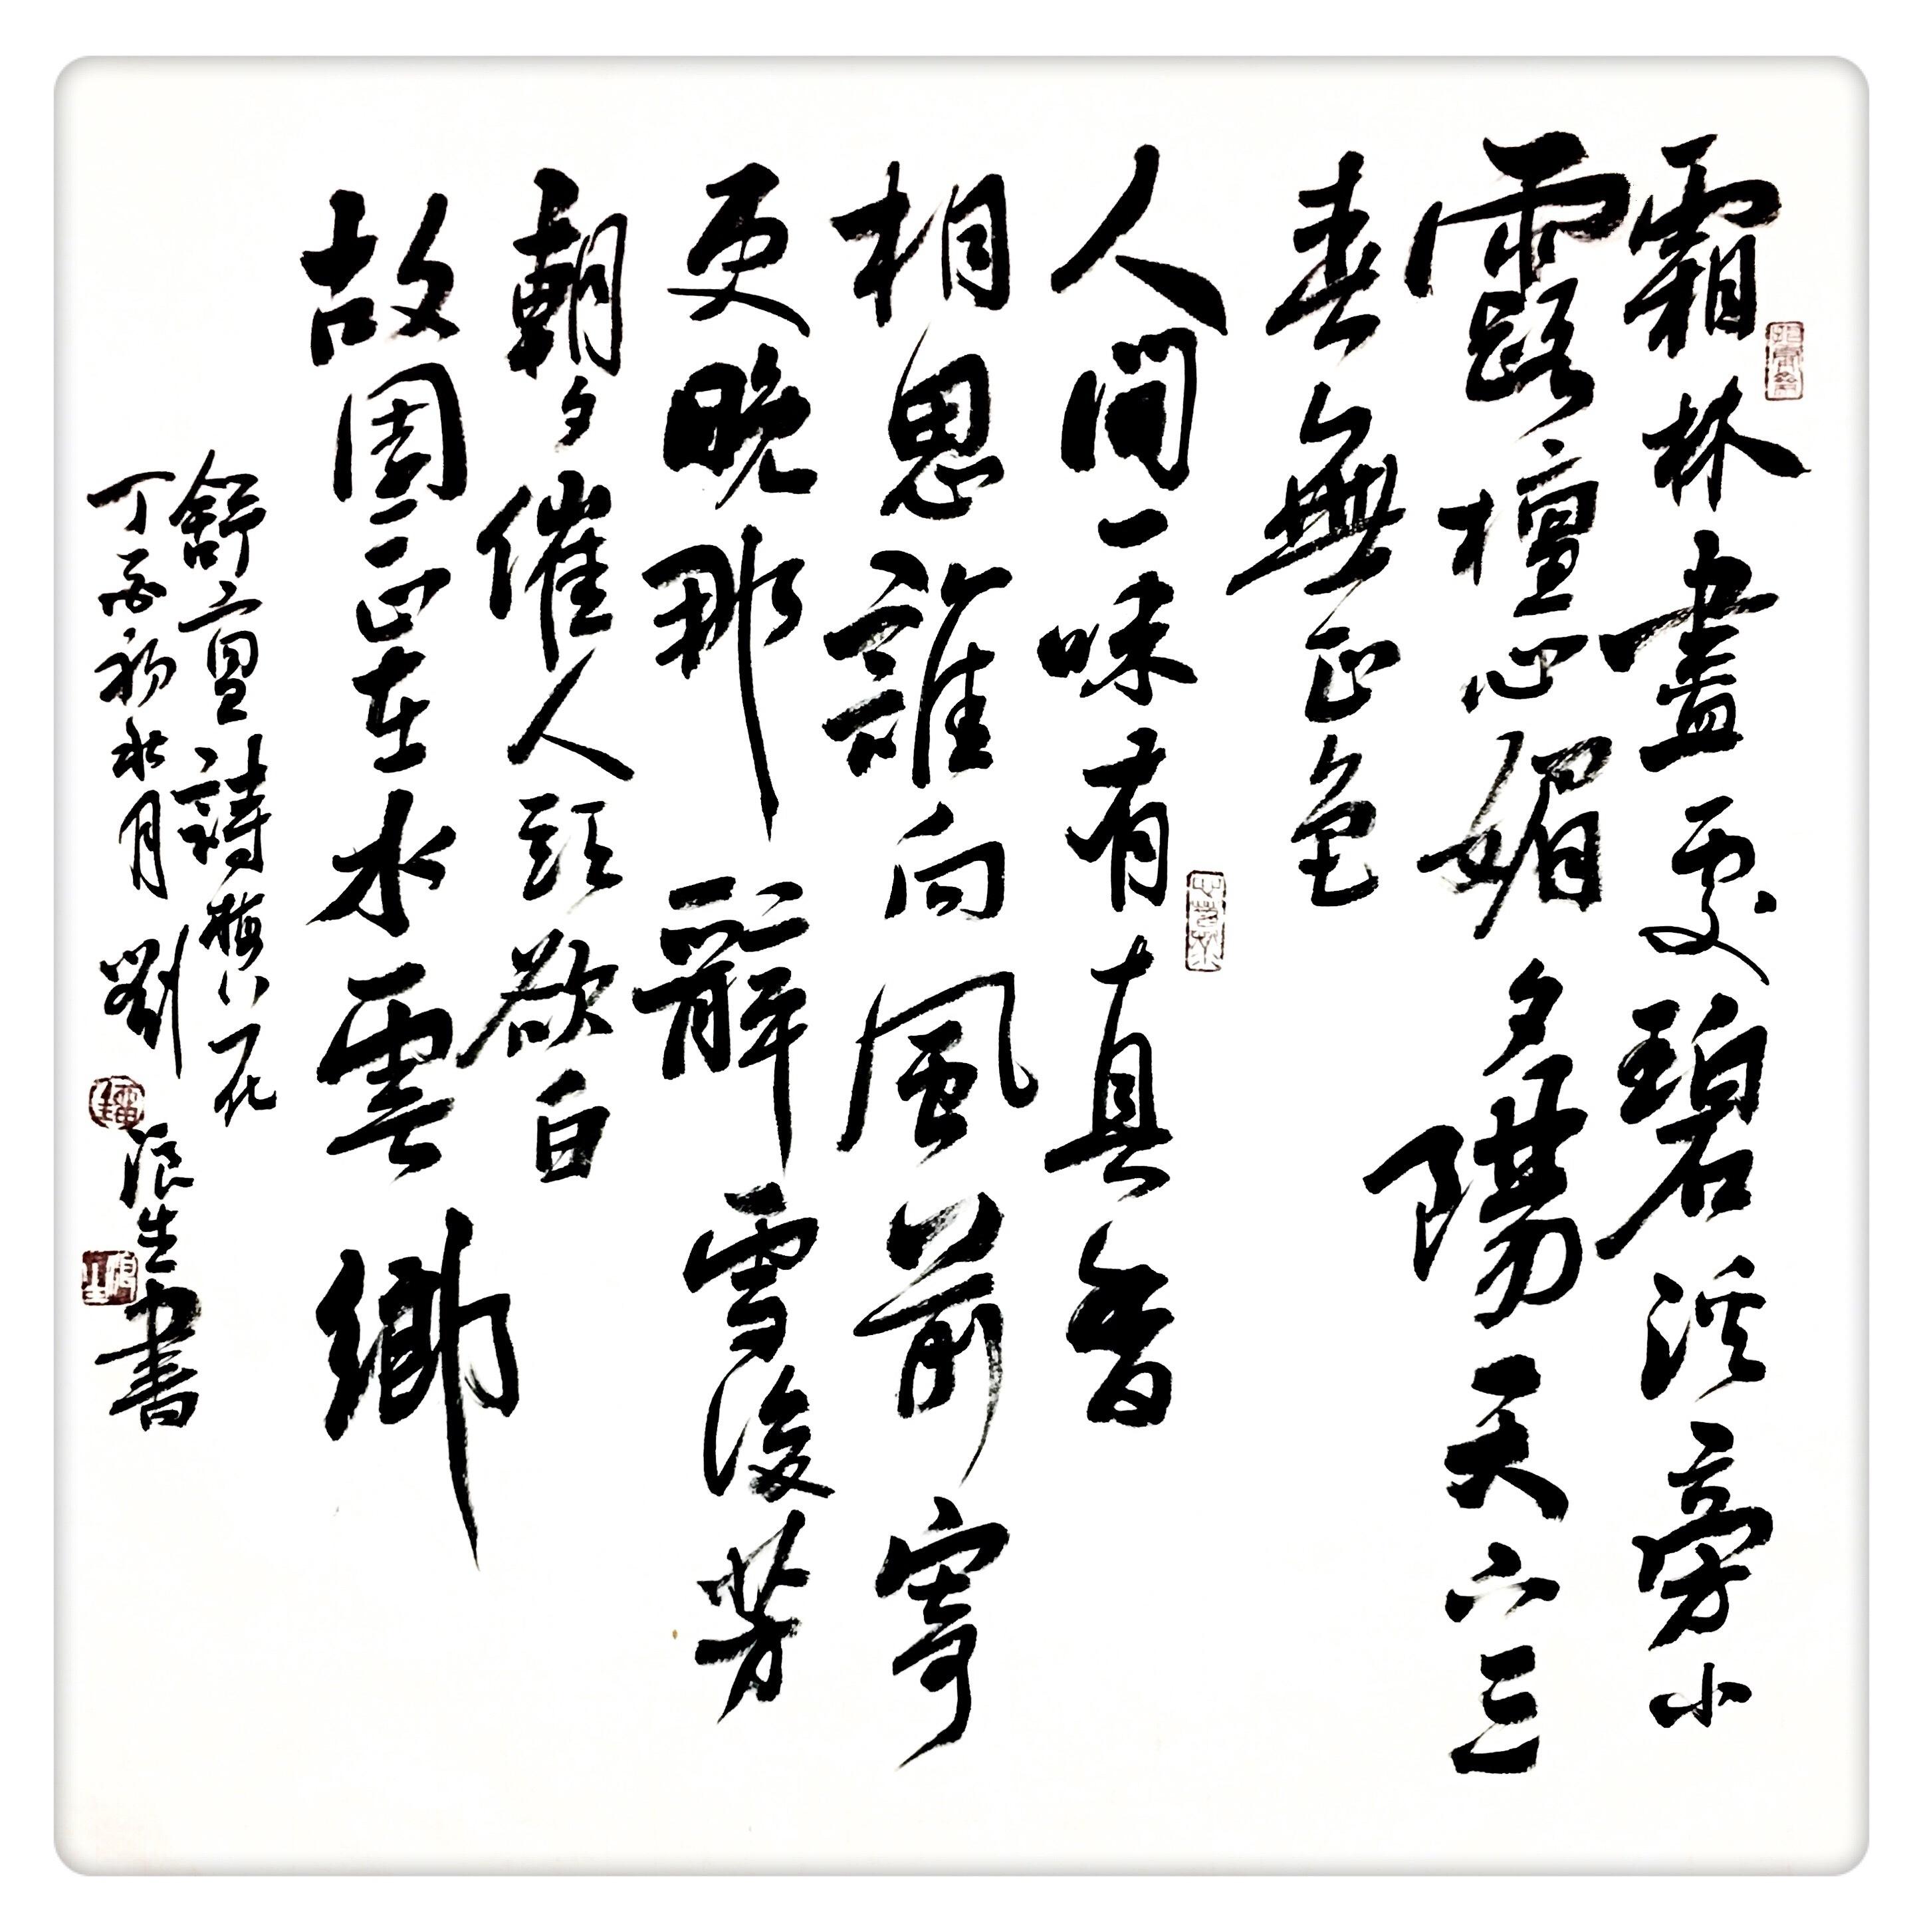 霜林盡處碧溪旁小
露檀心媚夕陽天下三
春無正色
人間一味有真香
相思誰向風前寄
更晚那辭雪後芳
朝夕催人頭欲白
故園正在水雲鄉
舒亶詩梅花
丁酉初秋月劉生書